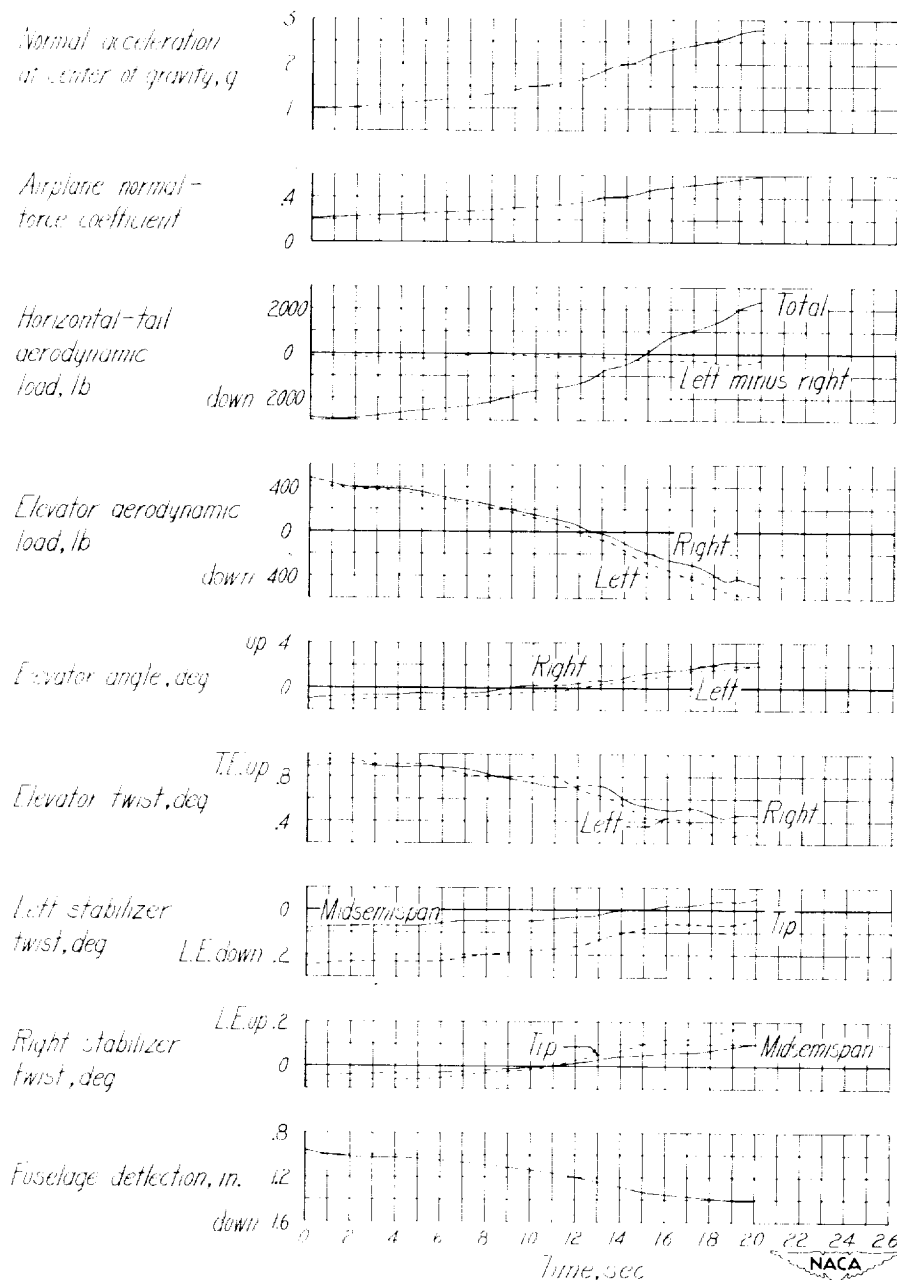 Normal acceleration
at center of gravity, g
3
2
1
Airplane normal-
force coefficient
.4
0
Horizontal-tail
aerodynamic
load, lb
2000
0
down 2000
Total
Left minus right
Elevator aerodynamic
load, lb
400
0
down 400
Right
Left
Elevator angle, deg
up 4
0
Right
Left
Elevator twist, deg
T.E. up .8
.4
Left
Right
Left stabilizer
twist, deg
0
L.E. down .2
Midsemispan
Tip
Right stabilizer
twist, deg
L.E. up .2
0
Tip
Midsemispan
Fuselage deflection, in.
.8
1.2
down 1.6
0 2 4 6 8 10 12 14 16 18 20 22 24 26
Time, sec
NACA